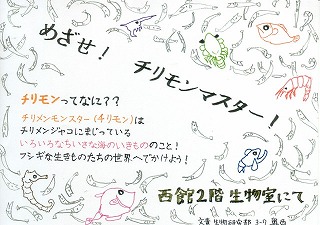 めざせ！
チリモンマスター！
チリモンってなに？？
チリメンモンスター(チリモン)は
チリメンジャコにまじっている
いろいろなちいさな海のいきもののこと！
フシギな生きものたちの世界へでかけよう！
西館2階 生物室にて
文責 生物研究部 3-9